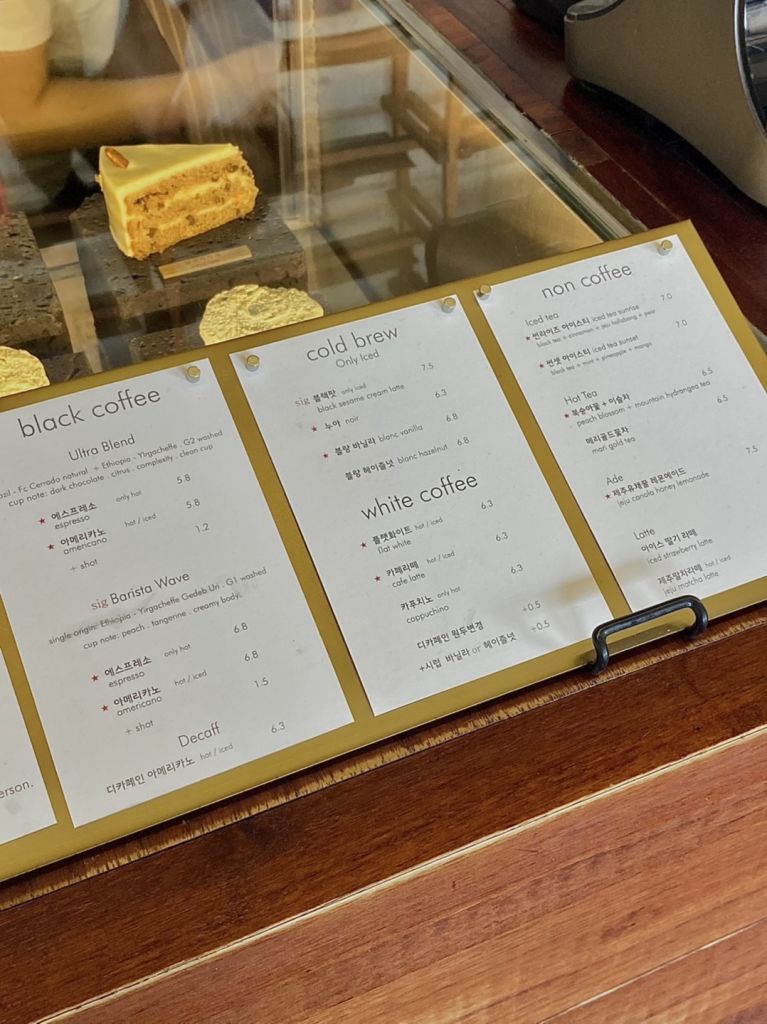 erson.
black coffee
Ultra Blend
Fc Cerrado natural + Ethiopia - Yirgacheffe . G2 washed
cup note: dark chocolate . citrus . complexity . clean cup
★ 에스프레소 only hot 5.8
espresso
★ 아메리카노 hot / iced 5.8
americano
+ shot 1.2
sig Barista Wave
single origin: Ethiopia - Yirgacheffe Gedeb Uri . G1 washed
cup note: peach . tangerine . creamy body.
★ 에스프레소 only hot 6.8
espresso
★ 아메리카노 hot / iced 6.8
americano
+ shot 1.5
Decaff
디카페인 아메리카노 hot / iced 6.3
cold brew
Only Iced
sig 블랙팟 only iced 7.5
black sesame cream latte
★ 누아 noir 6.3
★ 블랑 바닐라 blanc vanilla 6.8
블랑 헤이즐넛 blanc hazelnut 6.8
white coffee
★ 플랫화이트 hot / iced 6.3
flat white
★ 카페라떼 hot / iced 6.3
cafe latte
카푸치노 only hot 6.3
cappuchino
디카페인 원두변경 +0.5
+시럽 바닐라 or 헤이즐넛 +0.5
non coffee
Iced tea
★ 썬라이즈 아이스티 iced tea sunrise 7.0
black tea + cinnamon + jeju hallabong + pear
★ 썬셋 아이스티 iced tea sunset 7.0
black tea + mint + pineapple + mango
Hot Tea
★ 복숭아꽃 + 이슬차 6.5
peach blossom + mountain hydrangea tea
메리골드꽃차 6.5
mari gold tea
Ade
★ 제주유채꿀 레몬에이드 7.5
jeju canola honey lemonade
Latte
아이스 딸기 라떼
iced strawberry latte
제주말차라떼 hot / iced
jeju matcha latte